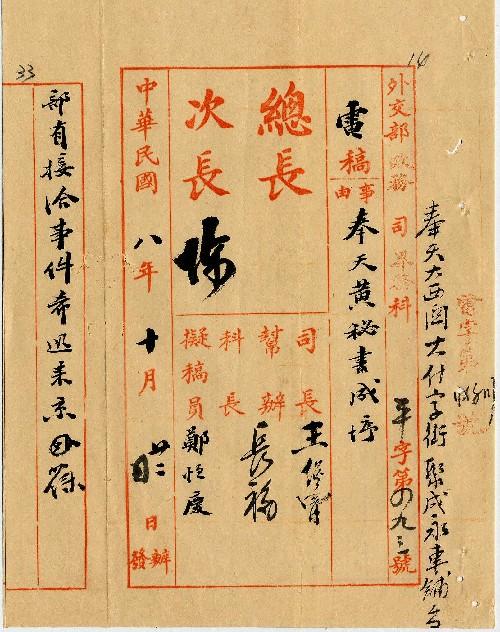 14
奉天大西關大什字街聚成永車鋪台
電字第號
外交部政務司科
字第四九三號
電稿
事由
奉天黃秘書成垿
總長
次長
陳
司長 王
幫辦 長福
科長
擬稿員 鄭恒慶
中華民國八年十月日辦發
33
部有接洽事件希迅來京